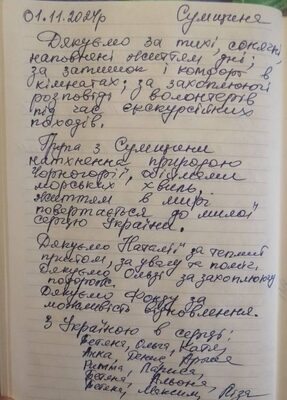 01.11.2024р Сумщина
Дякуємо за тихі, сонячні,
наповнені життям дні;
за затишок і комфорт в
кімнатах; за захоплюючі
розповіді волонтерів
під час екскурсійних
походів.
Група з Сумщини
натхненна природою
Чорногорії, обіймами
морських хвиль,
життям в мирі
повертається до милої
серцю України.
Дякуємо Наталії за теплий
прийом, за увагу та поміч,
Дякуємо Ользі за захоплюючу
подорож.
Дякуємо Фонду за
можливість відновлення.
З Україною в серці:
Тетяна, Ольга, Катя,
Анна, Денис,
Римма, Лариса,
Тетяна, Альона,
Тетяна, Максим, Ліза